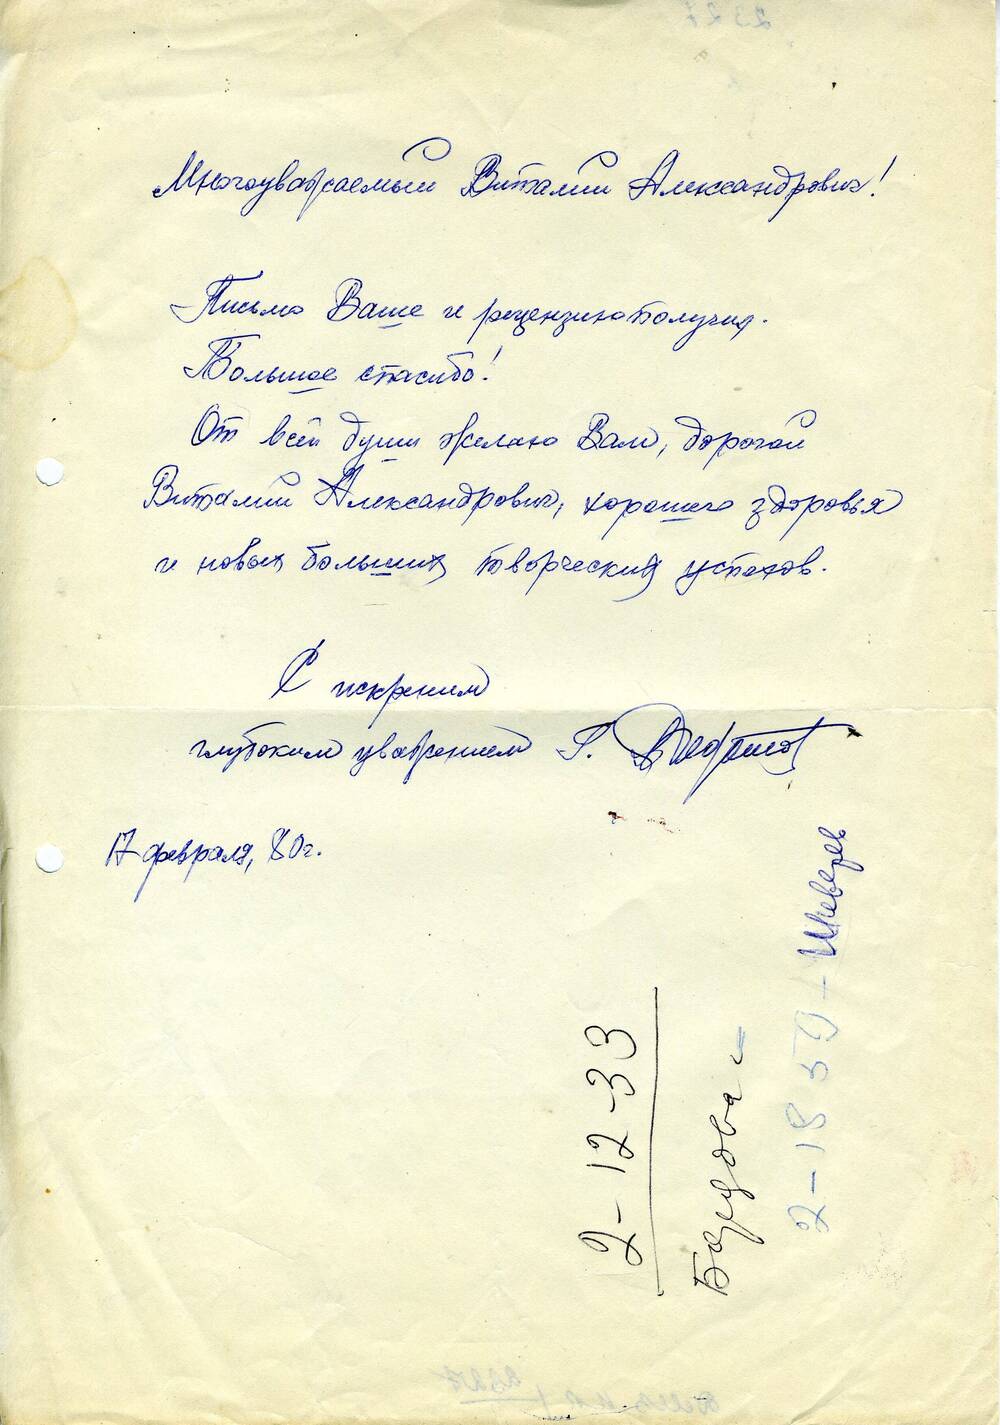 Многоуважаемый Виталий Александрович!
Письмо Ваше и рецензию получил.
Большое спасибо!
От всей души желаю Вам, дорогой
Виталий Александрович, хорошего здоровья
и новых больших творческих успехов.
С искреним
глубоким уважением Г.
17 февраля, 80 г.
2-12-33
2-18-50 - Шеверев